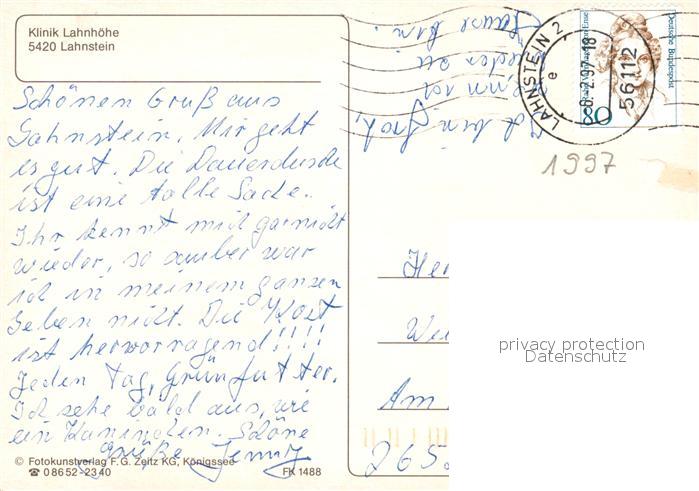 Klinik Lahnhöhe
5420 Lahnstein
Schönen Gruß aus
Lahnstein. Mir geht
es gut. Die Dauerdusche
ist eine tolle Sache.
Ihr kennt mich garnicht
wieder, so sauber war
ich in meinem ganzen
Leben nicht. Die Kost
ist hervorragend!!!!
Jeden Tag, Grünfutter.
Ich sehe bald aus, wie
ein Kaninchen. Schöne
Grüße Jenny
© Fotokunstverlag F. G. Zeitz KG, Königssee
☎ 0 86 52 - 23 40
FK 1488
Ich bin froh,
wenn ich
wieder zu
Hause bin.
Deutsche Bundespost
80
LAHNSTEIN 2
e
-6.2.97-18
56112
1997
Her
We
Am
265
privacy protection
Datenschutz